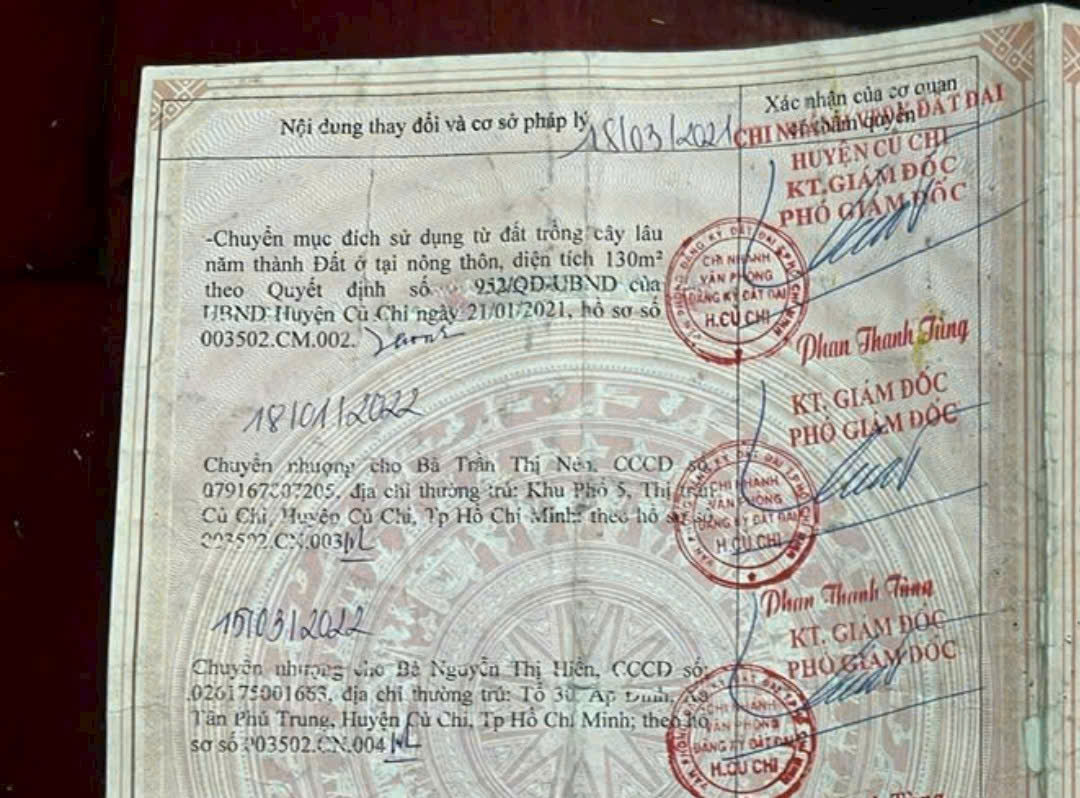 Nội dung thay đổi và cơ sở pháp lý
Xác nhận của cơ quan
có thẩm quyền
18/03/2021
CHI NHÁNH VPĐK ĐẤT ĐAI
HUYỆN CỦ CHI
KT.GIÁM ĐỐC
PHÓ GIÁM ĐỐC
-Chuyển mục đích sử dụng từ đất trồng cây lâu
năm thành Đất ở tại nông thôn, diện tích 130m²
theo Quyết định số 952/QĐ-UBND của
UBND Huyện Củ Chi ngày 21/01/2021, hồ sơ số
003502.CM.002.
VĂN PHÒNG ĐĂNG KÝ ĐẤT ĐAI TP HỒ CHÍ MINH
CHI NHÁNH
VĂN PHÒNG
ĐĂNG KÝ ĐẤT ĐAI
H.CỦ CHI
Phan Thanh Tùng
18/01/2022
KT. GIÁM ĐỐC
PHÓ GIÁM ĐỐC
Chuyển nhượng cho Bà Trần Thị Nén, CCCD số
địa chỉ thường trú: Khu Phố 5, Thị trấn
Củ Chi, Huyện Củ Chi, Tp Hồ Chí Minh; theo hồ sơ số
003502.CN.003
CHI NHÁNH
VĂN PHÒNG
ĐĂNG KÝ ĐẤT ĐAI
H.CỦ CHI
Phan Thanh Tùng
15/03/2022
KT. GIÁM ĐỐC
PHÓ GIÁM ĐỐC
Chuyển nhượng cho Bà Nguyễn Thị Hiên, CCCD số:
địa chỉ thường trú: Tổ Ấp Đình, Xã
Tân Phú Trung, Huyện Củ Chi, Tp Hồ Chí Minh; theo hồ
sơ số 003502.CN.004
CHI NHÁNH
VĂN PHÒNG
ĐĂNG KÝ ĐẤT ĐAI
H.CỦ CHI